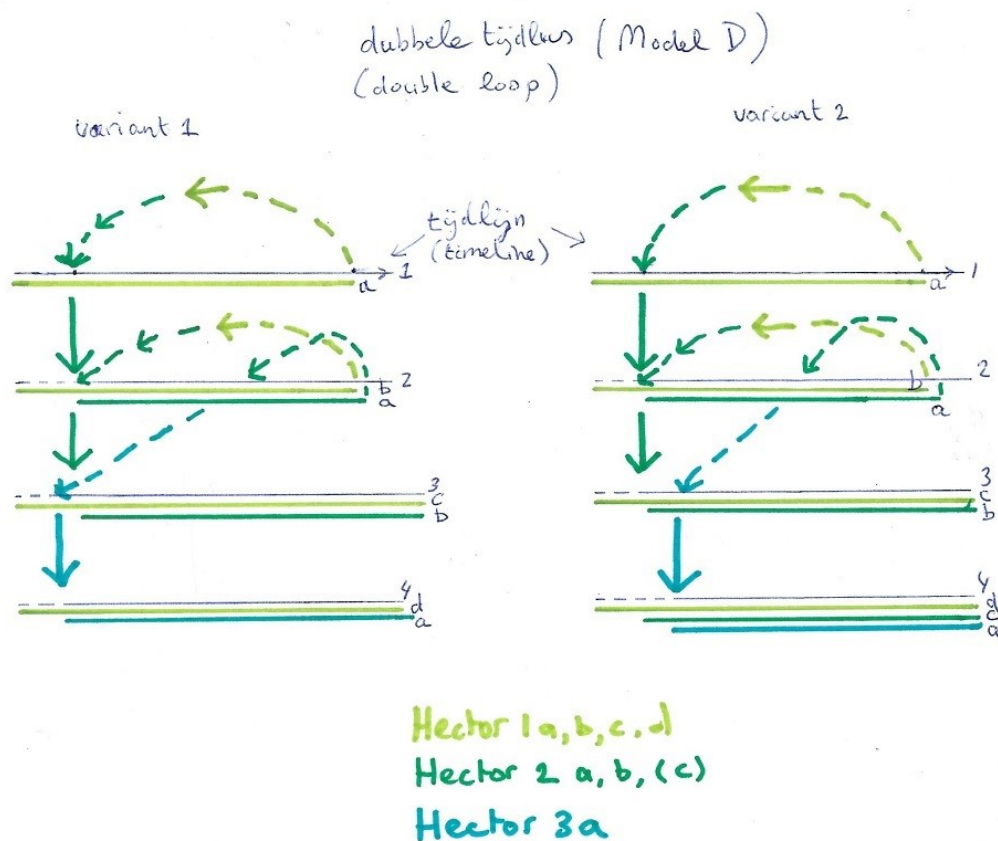 dubbele tijdlus (Model D)
(double loop)
variant 1
variant 2
tijdlijn
(timeline)
1
a
1
a
2
b
a
2
b
a
3
c
b
3
c
b
4
d
a
4
d
c
a
Hector 1a, b, c, d
Hector 2 a, b, (c)
Hector 3a